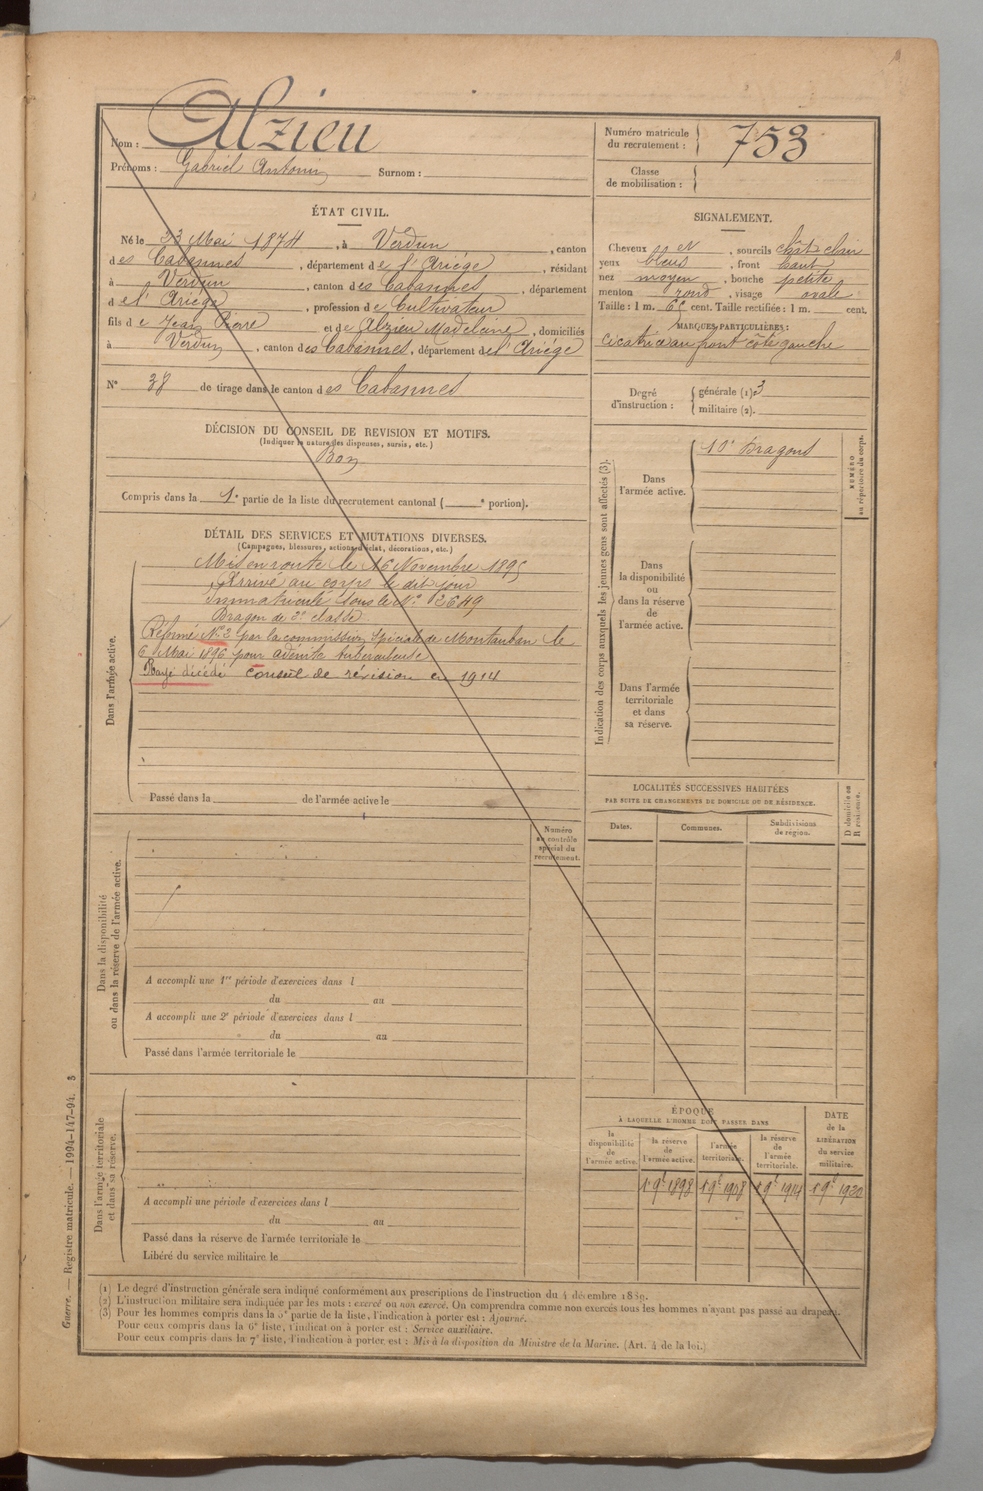 Nom : Alzieu
Prénoms : Gabriel Antonin Surnom :
Numéro matricule du recrutement : 753
Classe de mobilisation :
ÉTAT CIVIL.
Né le 23 Mai 1874, à Verdun, canton
des Cabannes, département de l'Ariège, résidant
à Verdun, canton des Cabannes, département
de l'Ariège, profession de Cultivateur
fils de Jean Pierre et de Alzieu Madeleine, domiciliés
à Verdun, canton des Cabannes, département de l'Ariège
N° 38 de tirage dans le canton des Cabannes
DÉCISION DU CONSEIL DE REVISION ET MOTIFS.
(Indiquer la nature des dispenses, sursis, etc.)
Bon
Compris dans la 1e partie de la liste du recrutement cantonal ( e portion).
SIGNALEMENT.
Cheveux et, sourcils chât clair
yeux bleus, front haut
nez moyen, bouche petite
menton rond, visage ovale
Taille : 1 m. 65 cent. Taille rectifiée : 1 m. cent.
MARQUES PARTICULIÈRES :
cicatrice au front côté gauche
Degré d'instruction : générale (1) 3
militaire (2).
DÉTAIL DES SERVICES ET MUTATIONS DIVERSES.
(Campagnes, blessures, actions d'éclat, décorations, etc.)
Dans l'armée active.
Mis en route le 16 Novembre 1895
Arrivé au corps le dit jour
Immatriculé sous le N° 2649
Dragon de 2e classe.
Réformé N° 2 par la commission spéciale de Montauban le
6 Mai 1896 pour adénite tuberculeuse
Rayé décédé Conseil de révision en 1914
Passé dans la de l'armée active le
Indication des corps auxquels les jeunes gens sont affectés (3).
Dans l'armée active.
10e Dragons
NUMÉRO au répertoire du corps.
Dans la disponibilité ou dans la réserve de l'armée active.
Dans l'armée territoriale et dans sa réserve.
LOCALITÉS SUCCESSIVES HABITÉES
PAR SUITE DE CHANGEMENTS DE DOMICILE OU DE RÉSIDENCE.
Dates. Communes. Subdivisions de région. D domicile ou R résidence.
Dans la disponibilité ou dans la réserve de l'armée active.
Numéro au contrôle spécial du recrutement.
A accompli une 1re période d'exercices dans l
du au
A accompli une 2e période d'exercices dans l
du au
Passé dans l'armée territoriale le
Dans l'armée territoriale et dans sa réserve.
A accompli une période d'exercices dans l
du au
Passé dans la réserve de l'armée territoriale le
Libéré du service militaire le
ÉPOQUE
À LAQUELLE L'HOMME DOIT PASSER DANS
la disponibilité de l'armée active.
la réserve de l'armée active.
l'armée territoriale.
la réserve de l'armée territoriale.
DATE de la LIBÉRATION du service militaire.
1 9e 1898 1 9e 1908 1 9e 1914 1 9e 1920
Guerre. — Registre matricule. — 1994-147-94. 3
(1) Le degré d'instruction générale sera indiqué conformément aux prescriptions de l'instruction du 4 décembre 1889.
(2) L'instruction militaire sera indiquée par les mots : exercé ou non exercé. On comprendra comme non exercés tous les hommes n'ayant pas passé au drapeau.
(3) Pour les hommes compris dans la 5e partie de la liste, l'indication à porter est : Ajourné.
Pour ceux compris dans la 6e liste, l'indication à porter est : Service auxiliaire.
Pour ceux compris dans la 7e liste, l'indication à porter est : Mis à la disposition du Ministre de la Marine. (Art. 4 de la loi.)